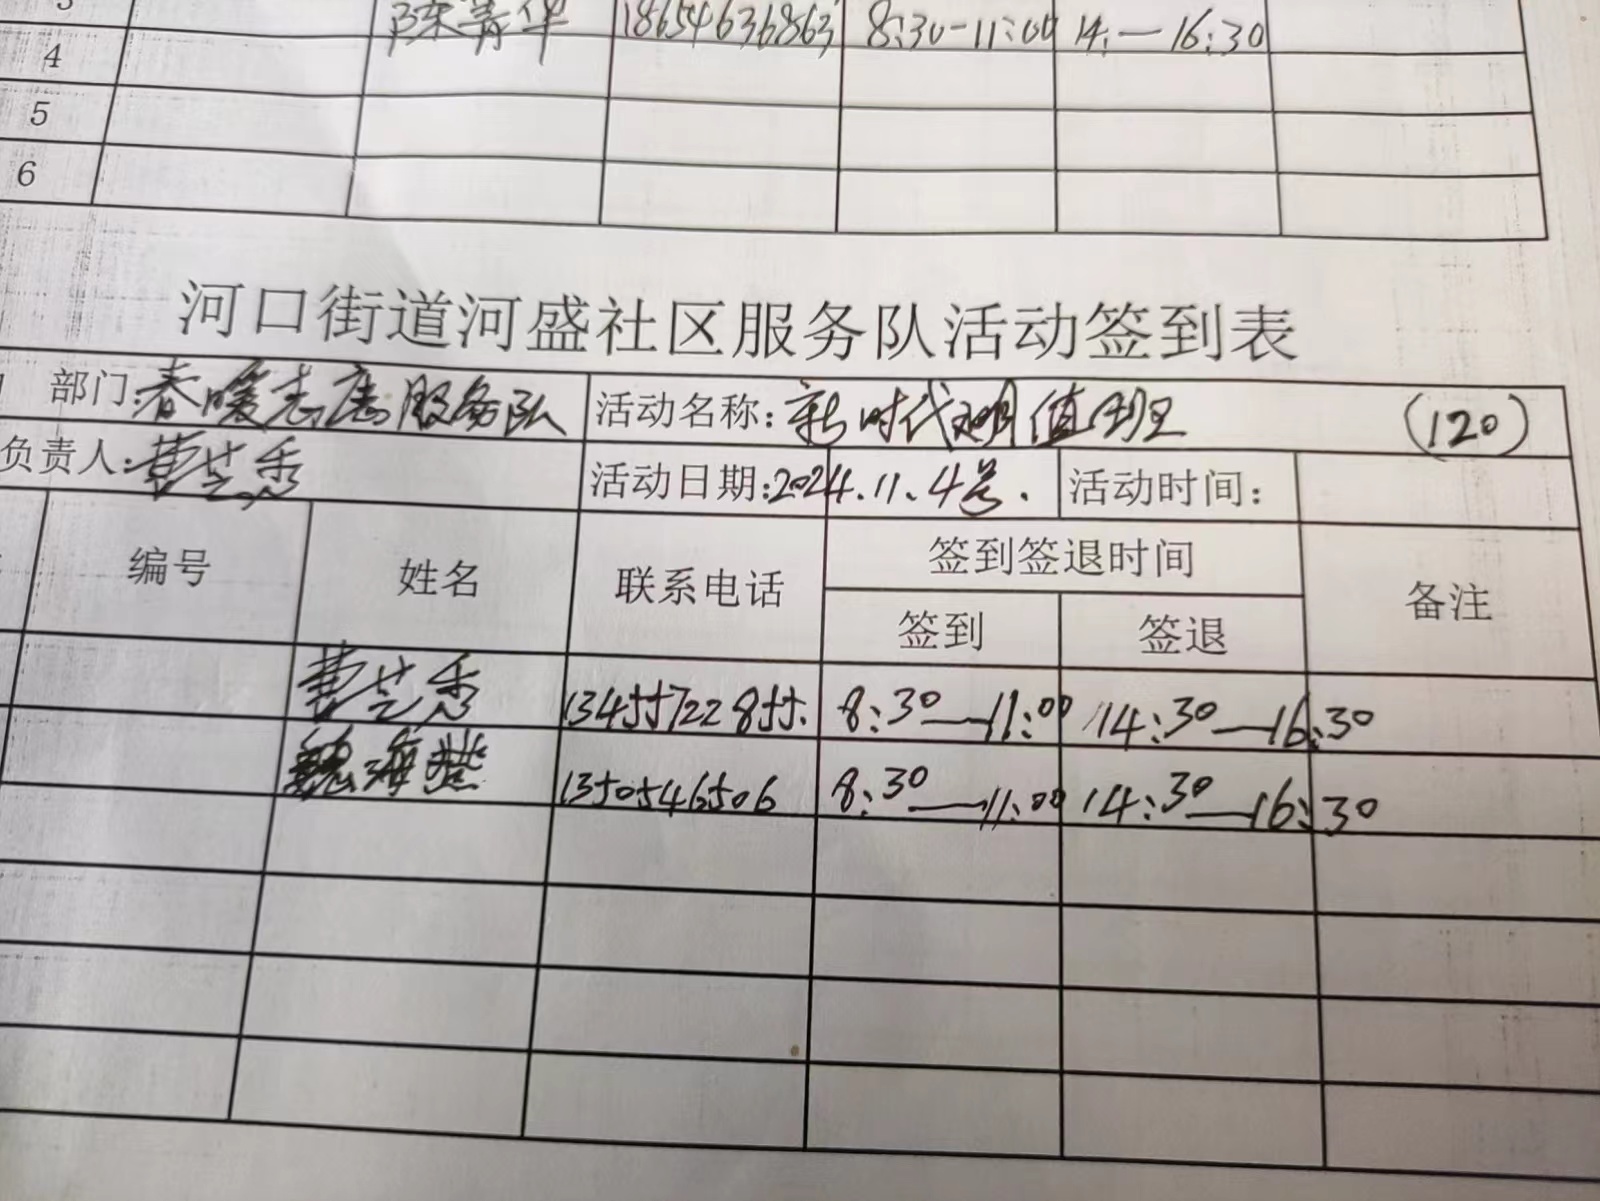 3 陈菁华 18654636863 8:30-11:00 14:—16:30
4
5
6
河口街道河盛社区服务队活动签到表
部门:春暖志愿服务队 活动名称: 新时代文明值班 (120)
负责人:曹芝秀 活动日期:2024.11.4号. 活动时间:
编号 姓名 联系电话 签到签退时间 备注
签到 签退
曹芝秀 13455722855. 8:30—11:00 14:30—16:30
魏海燕 1350546506 8:30—11:00 14:30—16:30